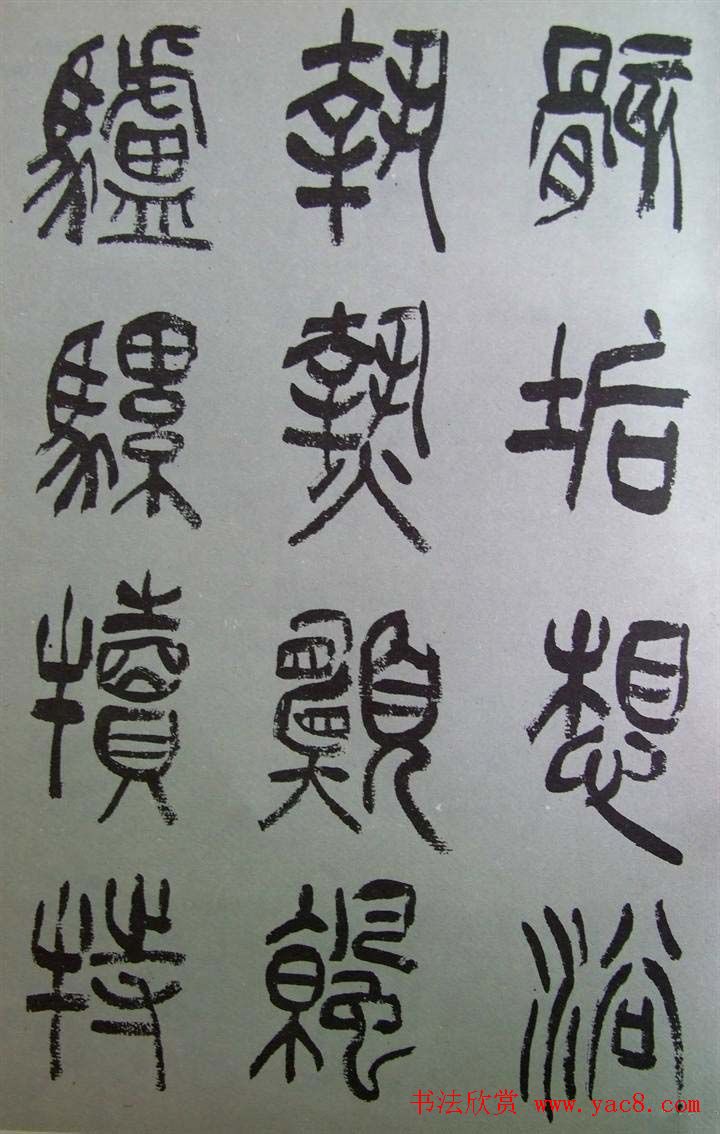 骸垢想浴
執熱願涼
驢騾犢特
书法欣赏 www.yac8.com